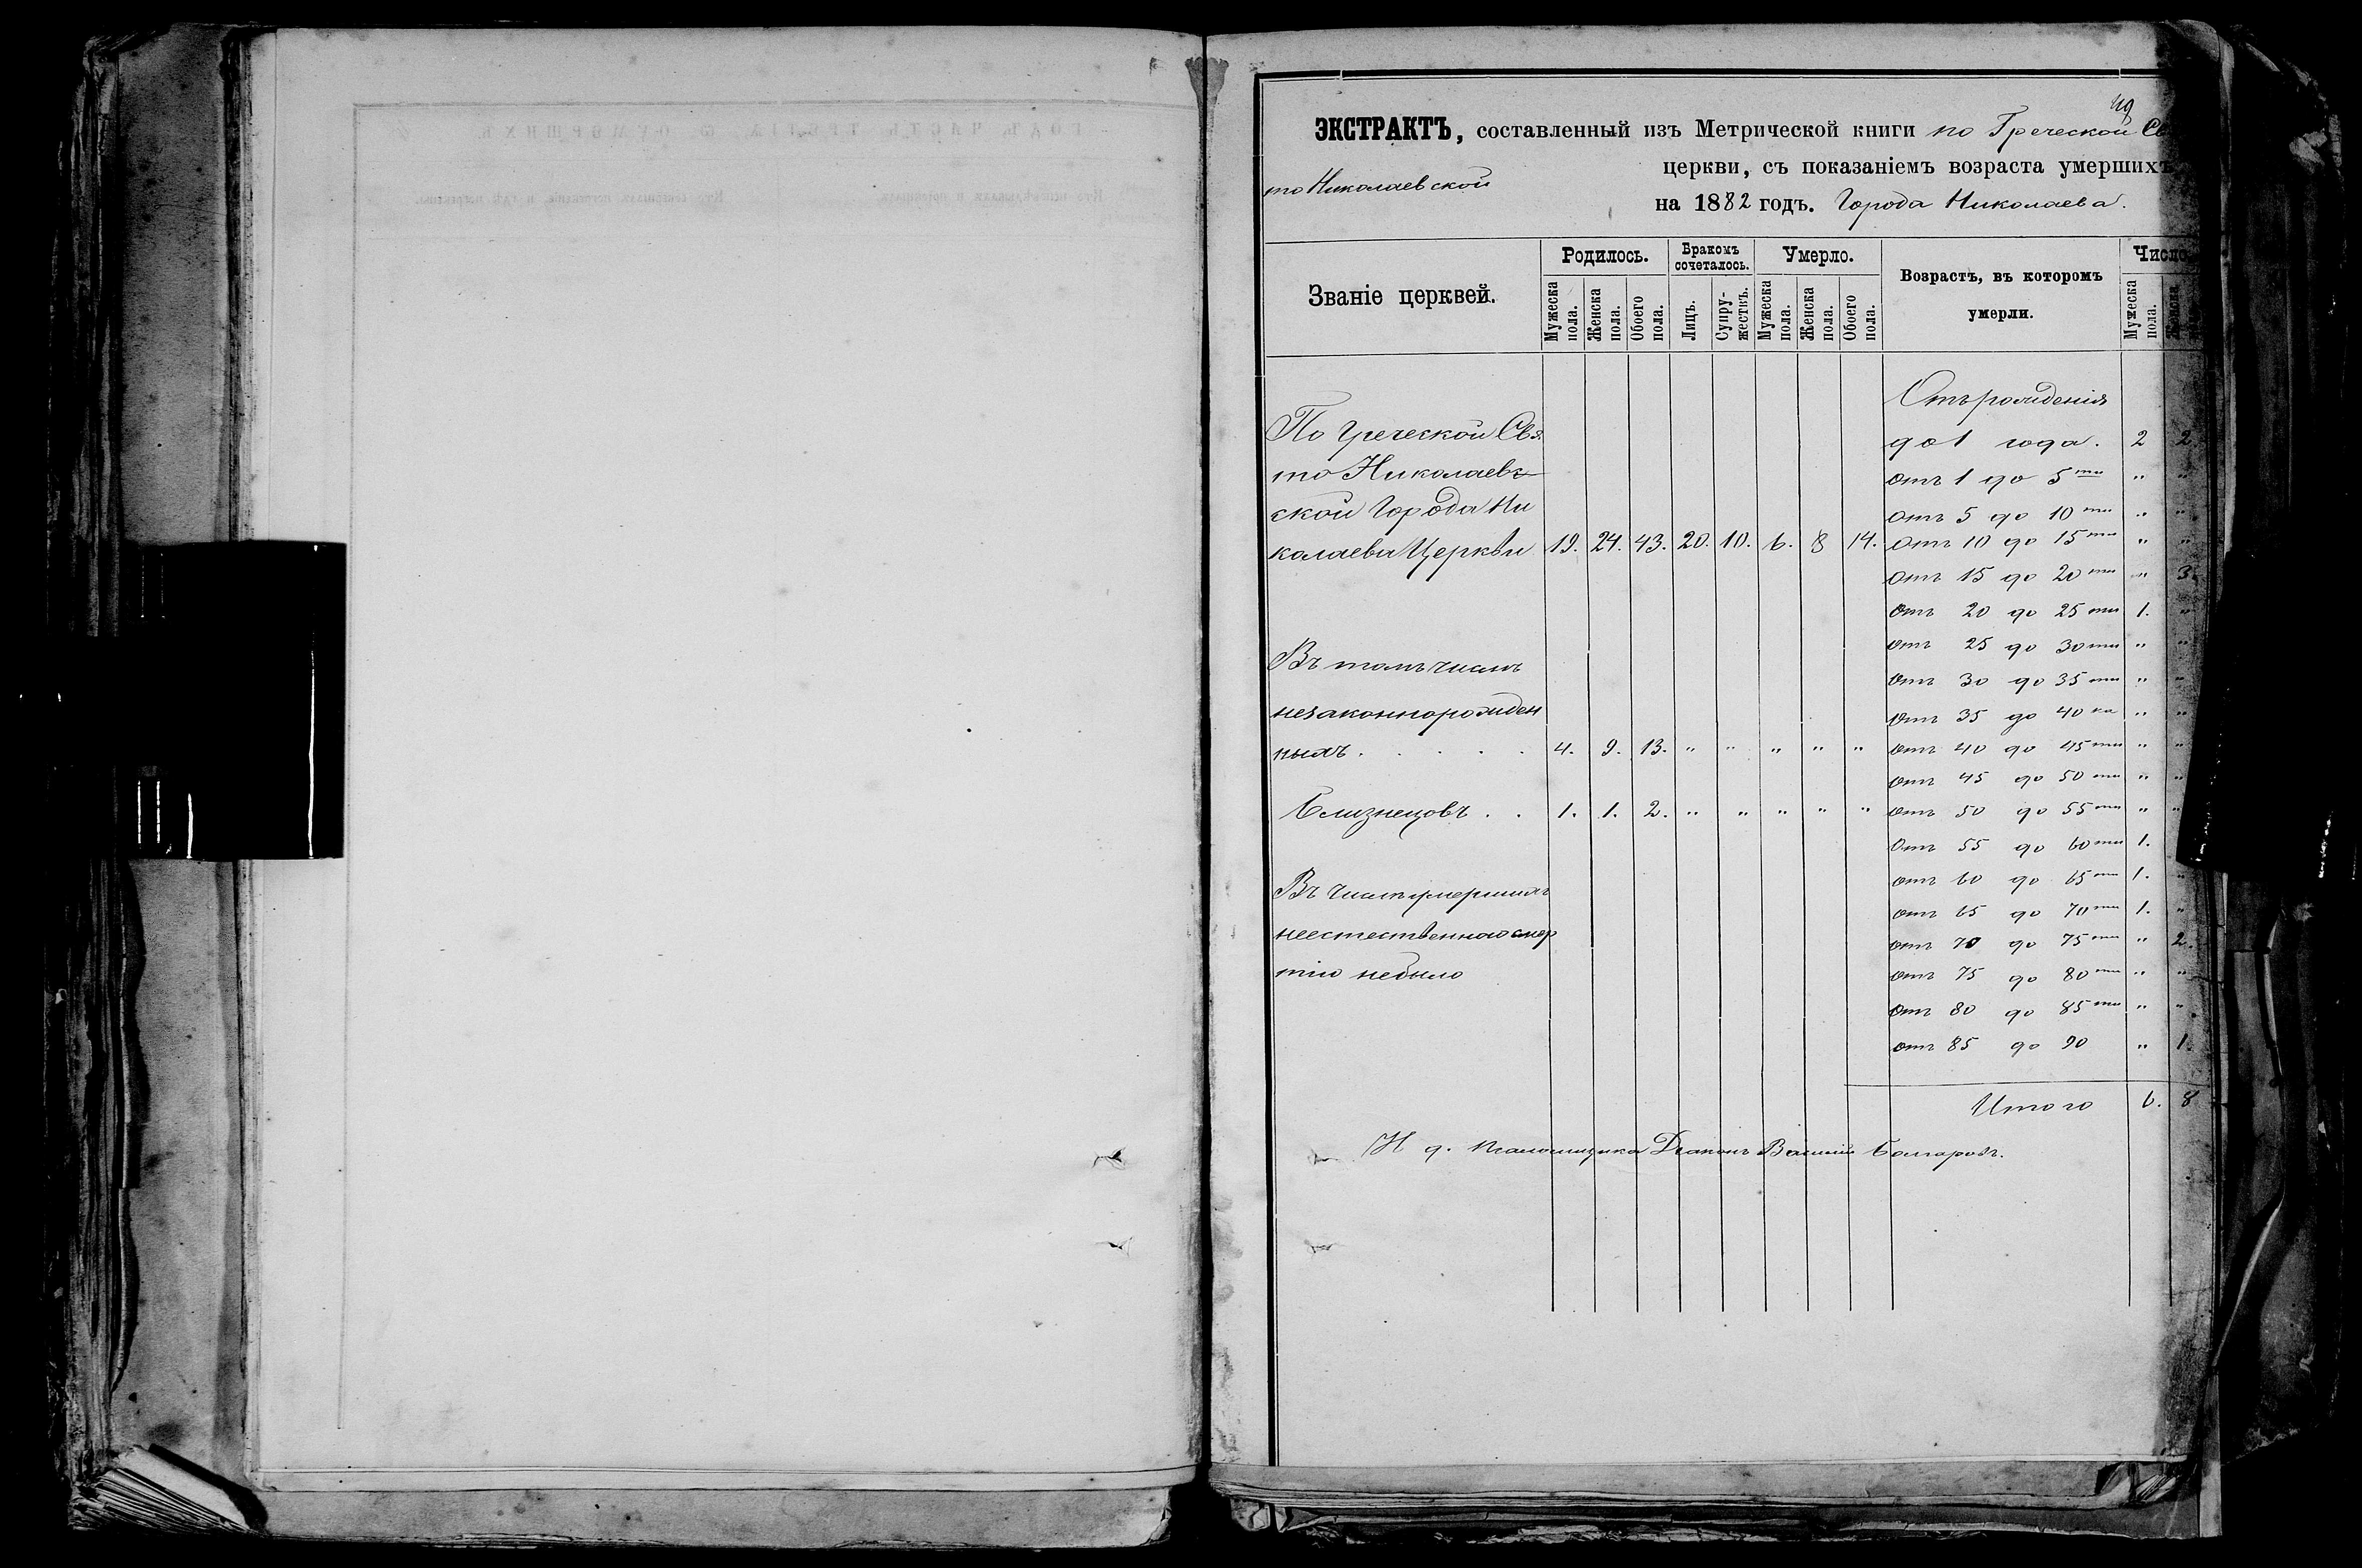 49
ЭКСТРАКТЪ, составленный изъ Метрической книги по Греческой Свя
то Николаевской церкви, съ показаніемъ возраста умершихъ,
на 1882 годъ. Города Николаева.
Званіе церквей. Родилось. Бракомъ сочеталось. Умерло. Возрастъ, въ которомъ умерли. Число
Мужеска пола. Женска пола. Обоего пола. Лицъ. Супружествъ. Мужеска пола. Женска пола. Обоего пола. Мужеска пола. Женска
Отъ рожденія
По Греческой Свя
до 1 года. 2 2
то Николаев
отъ 1 до 5ти " "
ской Города Ни
отъ 5 до 10ти " "
колаева Церкви 19. 24. 43. 20. 10. 6. 8 14. отъ 10 до 15ти " "
отъ 15 до 20ти " 3.
отъ 20 до 25ти 1. "
отъ 25 до 30ти " "
Въ томъ числѣ
отъ 30 до 35ти " "
незаконнорожден
отъ 35 до 40ка " "
ныхъ . . . . . 4. 9. 13. " " " " " отъ 40 до 45ти " "
отъ 45 до 50ти " "
Близнецовъ . . 1. 1. 2. " " " " " отъ 50 до 55ти " "
отъ 55 до 60ти 1.
отъ 60 до 65ти 1. "
Въ числѣ умершихъ
отъ 65 до 70ти 1. "
неестественною смер
отъ 70 до 75ти " 2.
тію небыло
отъ 75 до 80ти " "
отъ 80 до 85ти " "
отъ 85 до 90 " 1.
Итого 6. 8
И д. Псаломщика Діаконъ Василій